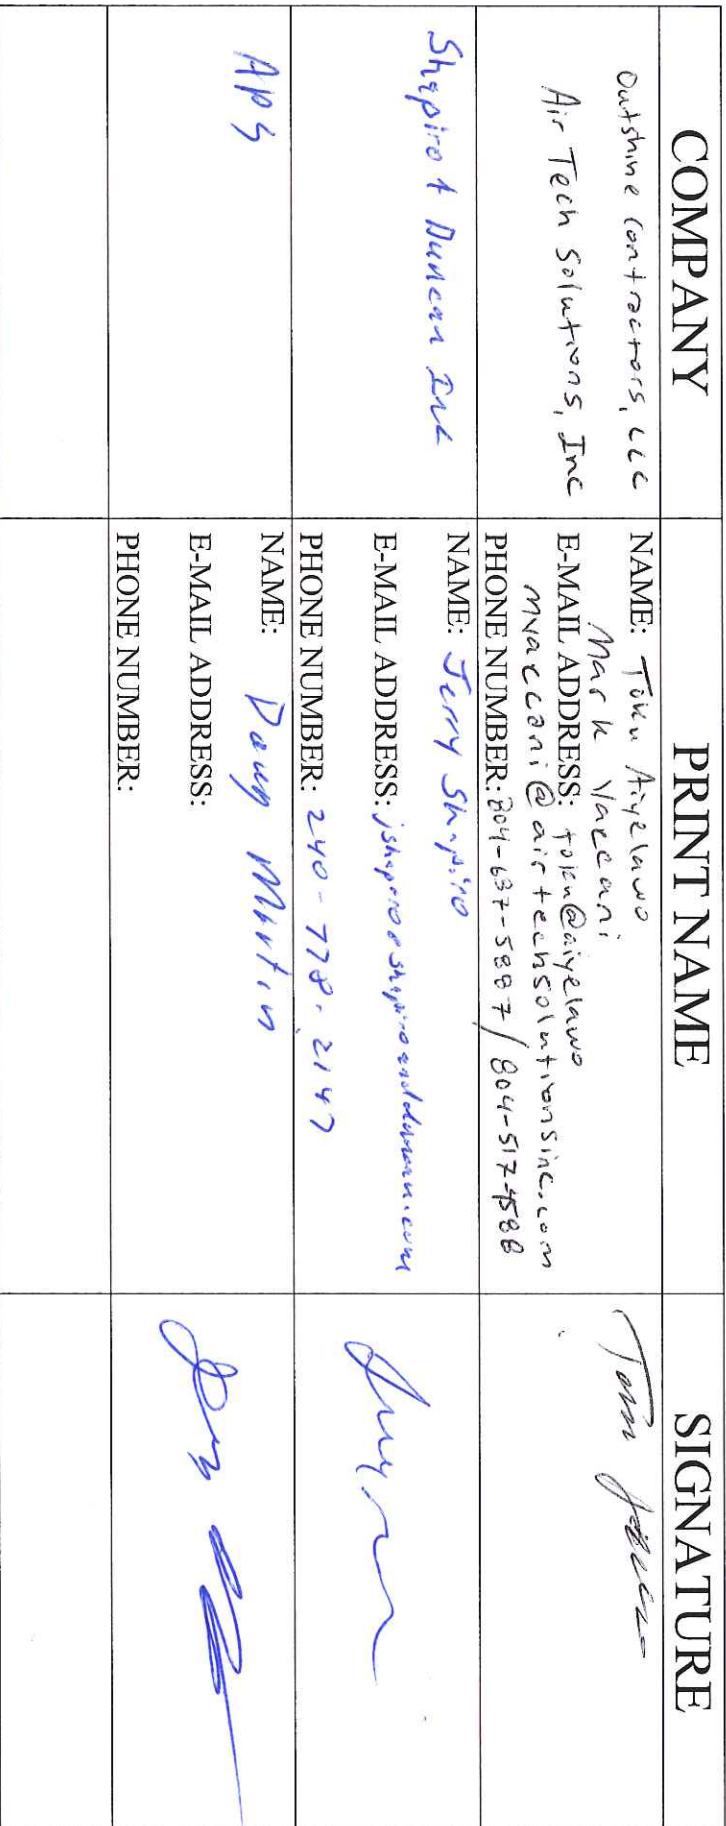 COMPANY
PRINT NAME
SIGNATURE
Outshine Contractors, LLC
Air Tech Solutions, Inc
NAME: Toku Aiyelawo
Mark Vaccani
E-MAIL ADDRESS: toku@aiyelawo
mvaccani@airtechsolutionsinc.com
PHONE NUMBER: 804-637-5887 / 804-517-4588
Shapiro & Duncan Inc
NAME: Jerry Shapiro
E-MAIL ADDRESS: jshapiro@shapiroandduncan.com
PHONE NUMBER: 240-778-2147
APS
NAME: Doug Martin
E-MAIL ADDRESS:
PHONE NUMBER: